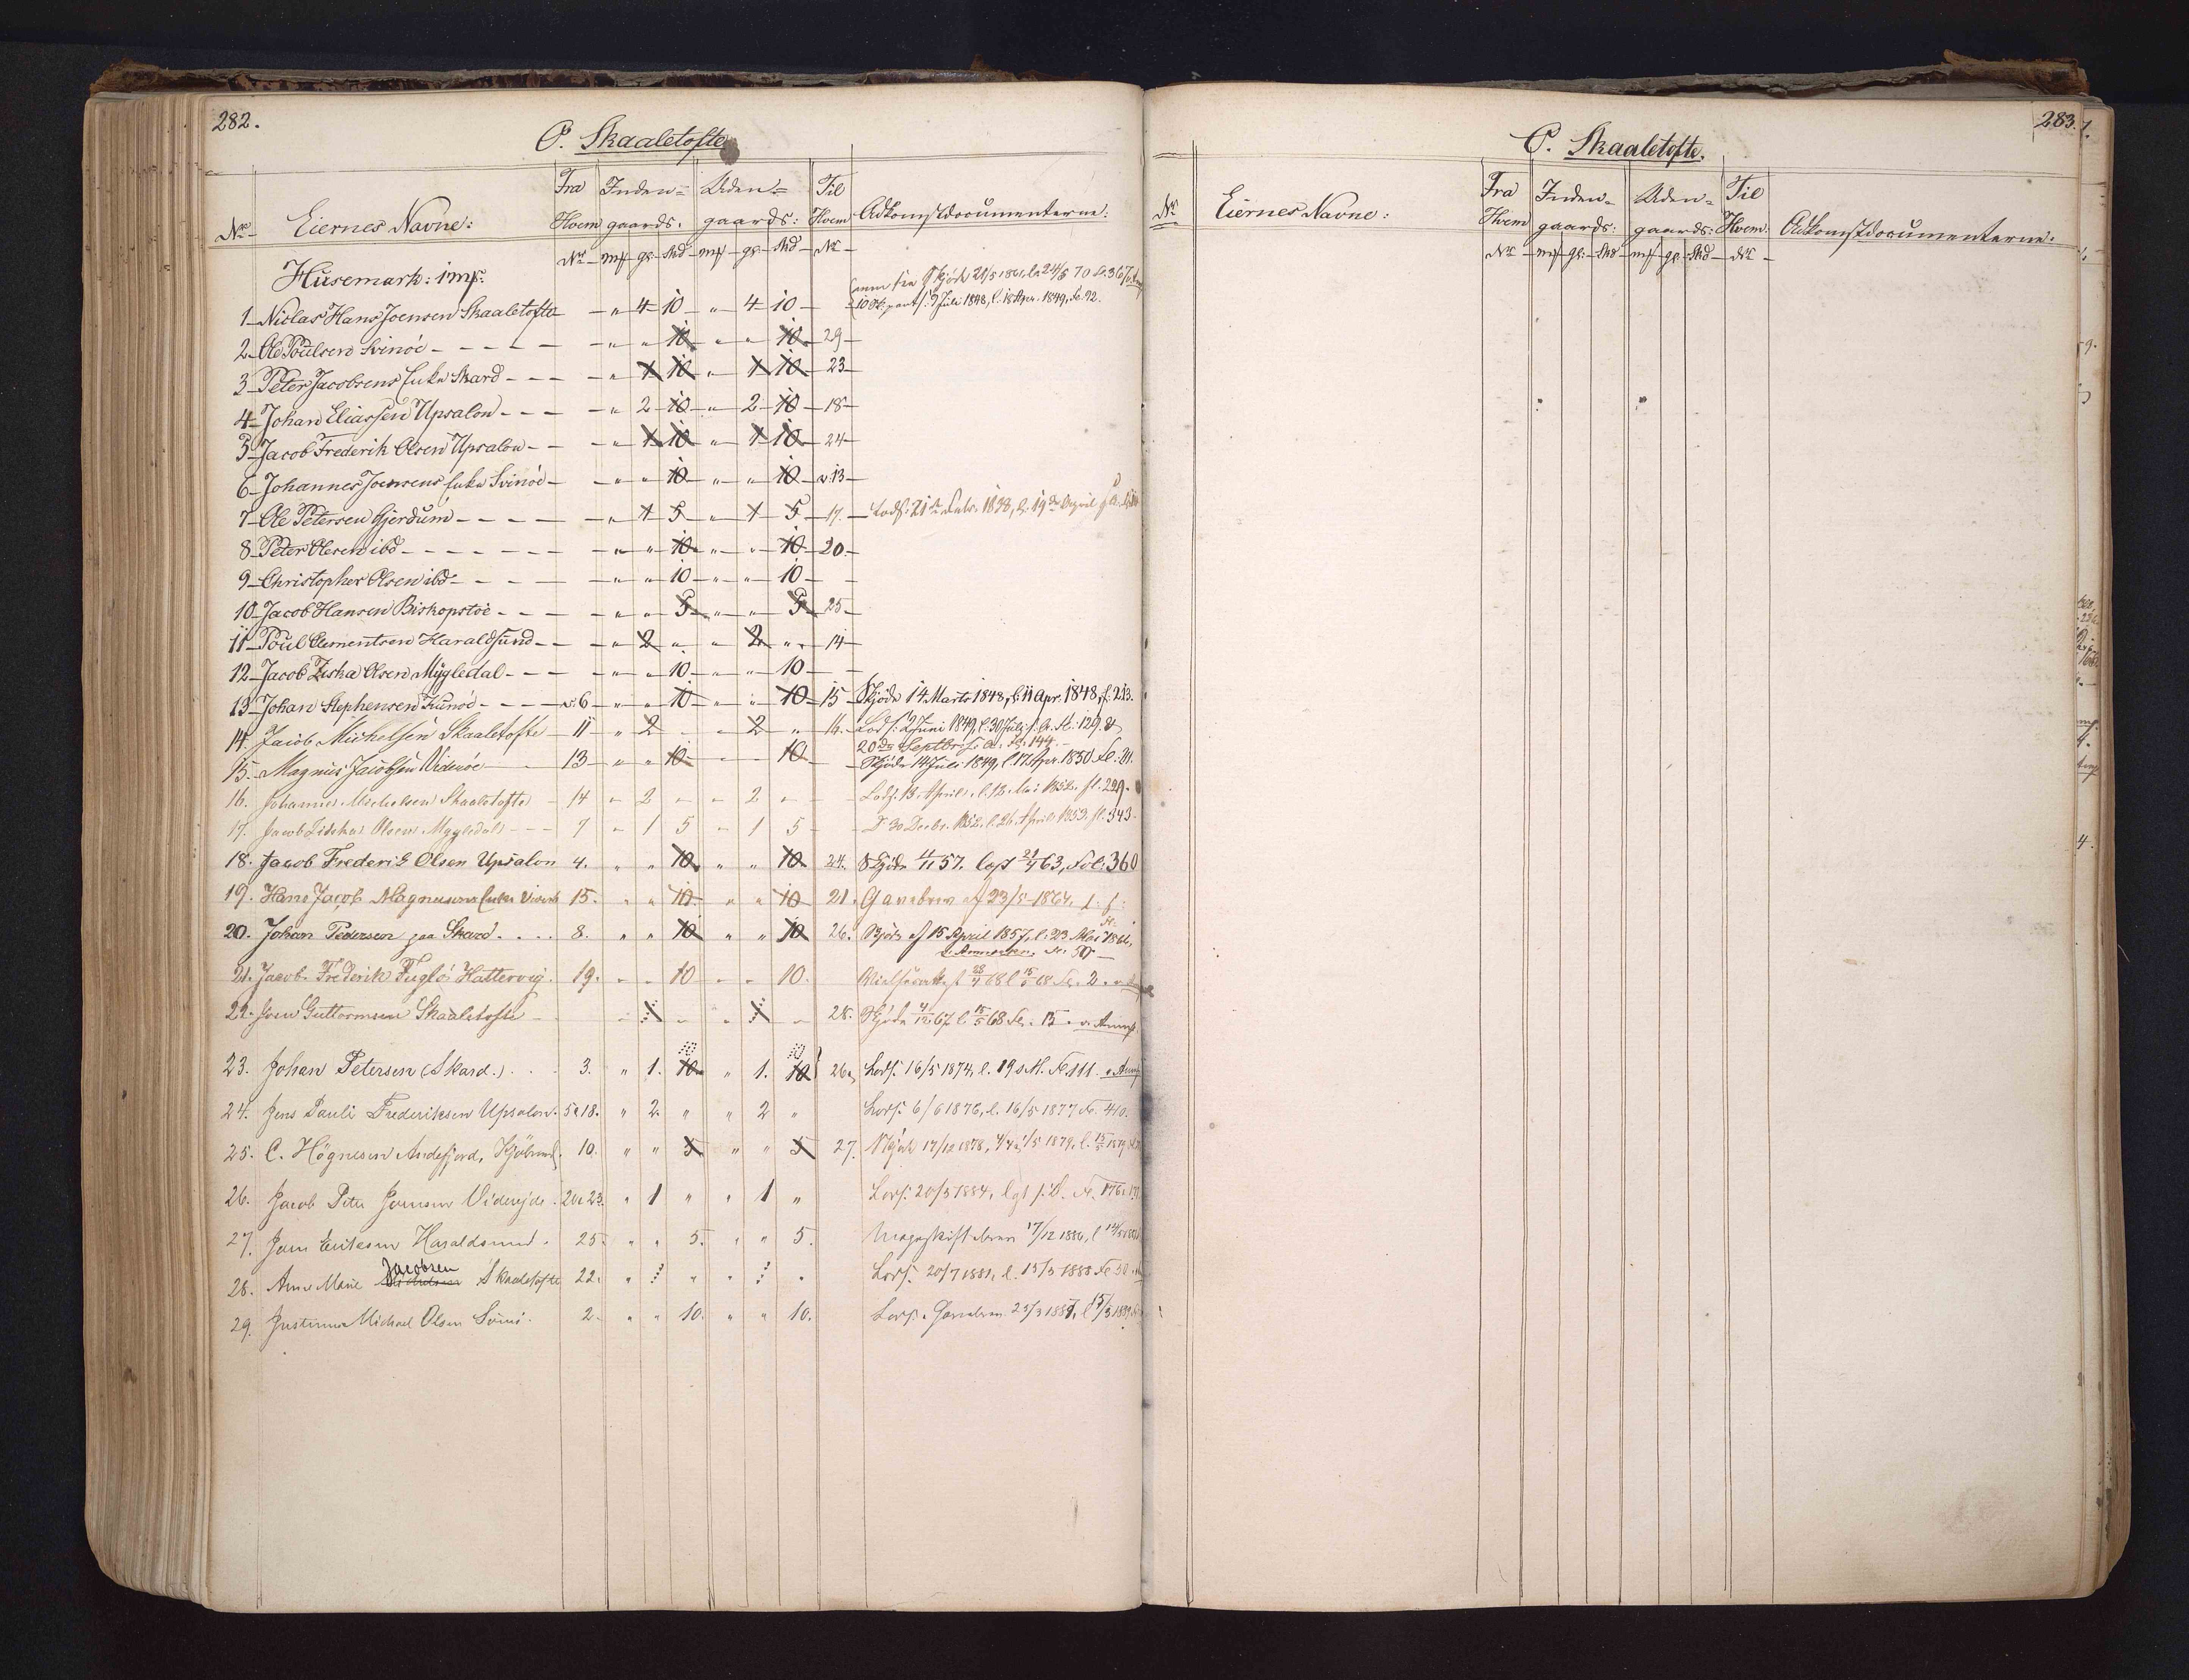 282.
P. Skaaletofte
Nr. Eiernes Navne: Fra Hvem Inden-gaards. Uden-gaards: Til Hvem Adkomstdocumenterne:
Nr. mk gs. Skd mk gs. Skd Nr.
Husemark: 1 mk.
1 Niclas Hans Joensen Skaaletofte " 4 10 " 4 10
2 Ole Poulsen Svinöe " " 10 " " 10 29
3 Peter Jacobsens Enke Skard " 1 10 " 1 10 23
4 Johan Eliassen Upsalon " 2 10 " 2 10 18
5 Jacob Frederik Olsen Upsalon " 1 10 " 1 10 24
6 Johannes Joensens Enke Svinöe " " 10 " " 10 v. 13
7 Ole Petersen Gjerdum " 1 5 " 1 5 17 Lods: 21de Febr. 1838, l. 19de April
8 Peter Olesen ibd " " 10 " " 10 20
9 Christopher Olsen ibd " " 10 " " 10
10 Jacob Hansen Biskopstöe " " 5 " " 5 25
11 Poul Clementsen Haraldsund " 2 " " 2 " 14
12 Jacob Ziska Olsen Mygledal " " 10 " " 10
13 Johan Stephensen Kunöe v. 6 " " 10 " " 10 15 Skjöde 14 Marts 1848, l. 11 Apr. 1848, f. 213.
14. Jacob Michelsen Skaaletofte 11 " 2 " " 2 " 16. Lods. 2 Juni 1849, l. 30 Juli s. A. Fl: 129. &
20de Septbr. s. A. Fl: 144.
15. Magnus Jacobsen Videröe 13 " " 10 " " 10 Skjöde 14 Juli 1849, l. 17 Apr. 1850 Fl.
16. Johannes Michelsen Skaaletofte 14 " 2 " " 2 " Lods. 13 April, l. 12 Mai 1852. fl. 299.
17. Jacob Zidska Olsen Mygledal 7 " 1 5 " 1 5 D. 30 Decbr. 1852, l. 26 April 1853. fl. 343.
18. Jacob Frederik Olsen Upsalon 4. " " 10 " " 10 24. Skjöde 4/11 57. læst 29/4 63, Fol: 360
19. Hans Jacob Magnussens Enke 15. " " 10 " " 10 21. Gavebrev af 23/5 1864,
20. Johan Pedersen paa Skard 8. " " 10 " " 10 26. Skjöde af 15 April 1857, l: 23 Mai 1861,
21. Jacob Frederik Fuglö Hattervig. 19. " " 10 " " 10. 28/4 68 l 15/5 68 Fl. 2.
22. Joen Guttormsen Skaaletofte 28. Skjöde 4/12 67 l 15/5 68 Fl. 15
23. Johan Petersen (Skard.) 3. " 1. 10 " 1. 10 26. Lods. 16/5 1874, l. 19 s. M. Fl 111.
24. Jens Pauli Frederiksen Upsalon. 5 & 18. " 2. " " 2 " Lods. 6/6 1876, l. 16/5 1877 Fl. 410.
25. C. Högnesen Andefjord, 10. " " 5 " " 5 27. Skjöde 17/12 1878, l. 15/5 1879
26. Jacob Peter Joensen Viderejde. 20 & 23. " 1 " " 1 " Lods. 20/5 1884, Fl. 176
27. Joen Eriksen Haraldsund. 25. " " 5. " " 5. Mageskiftebrev 17/12 1880,
28. Anne Marie Jacobsen Skaaletofte 22. Lods. 20/7 1881, l. 15/5 1888 Fl 50
29. Justinus Michael Olsen Svinö. 2. " " 10. " " 10. Lods. & Gavebrev 23/3 1887,
283.
P. Skaaletofte.
Nr. Eiernes Navne: Fra Hvem Inden-gaards: Uden-gaards: Til Hvem: Adkomstdocumenterne.
Nr. mk gs. Skd mk gs. Skd Nr.